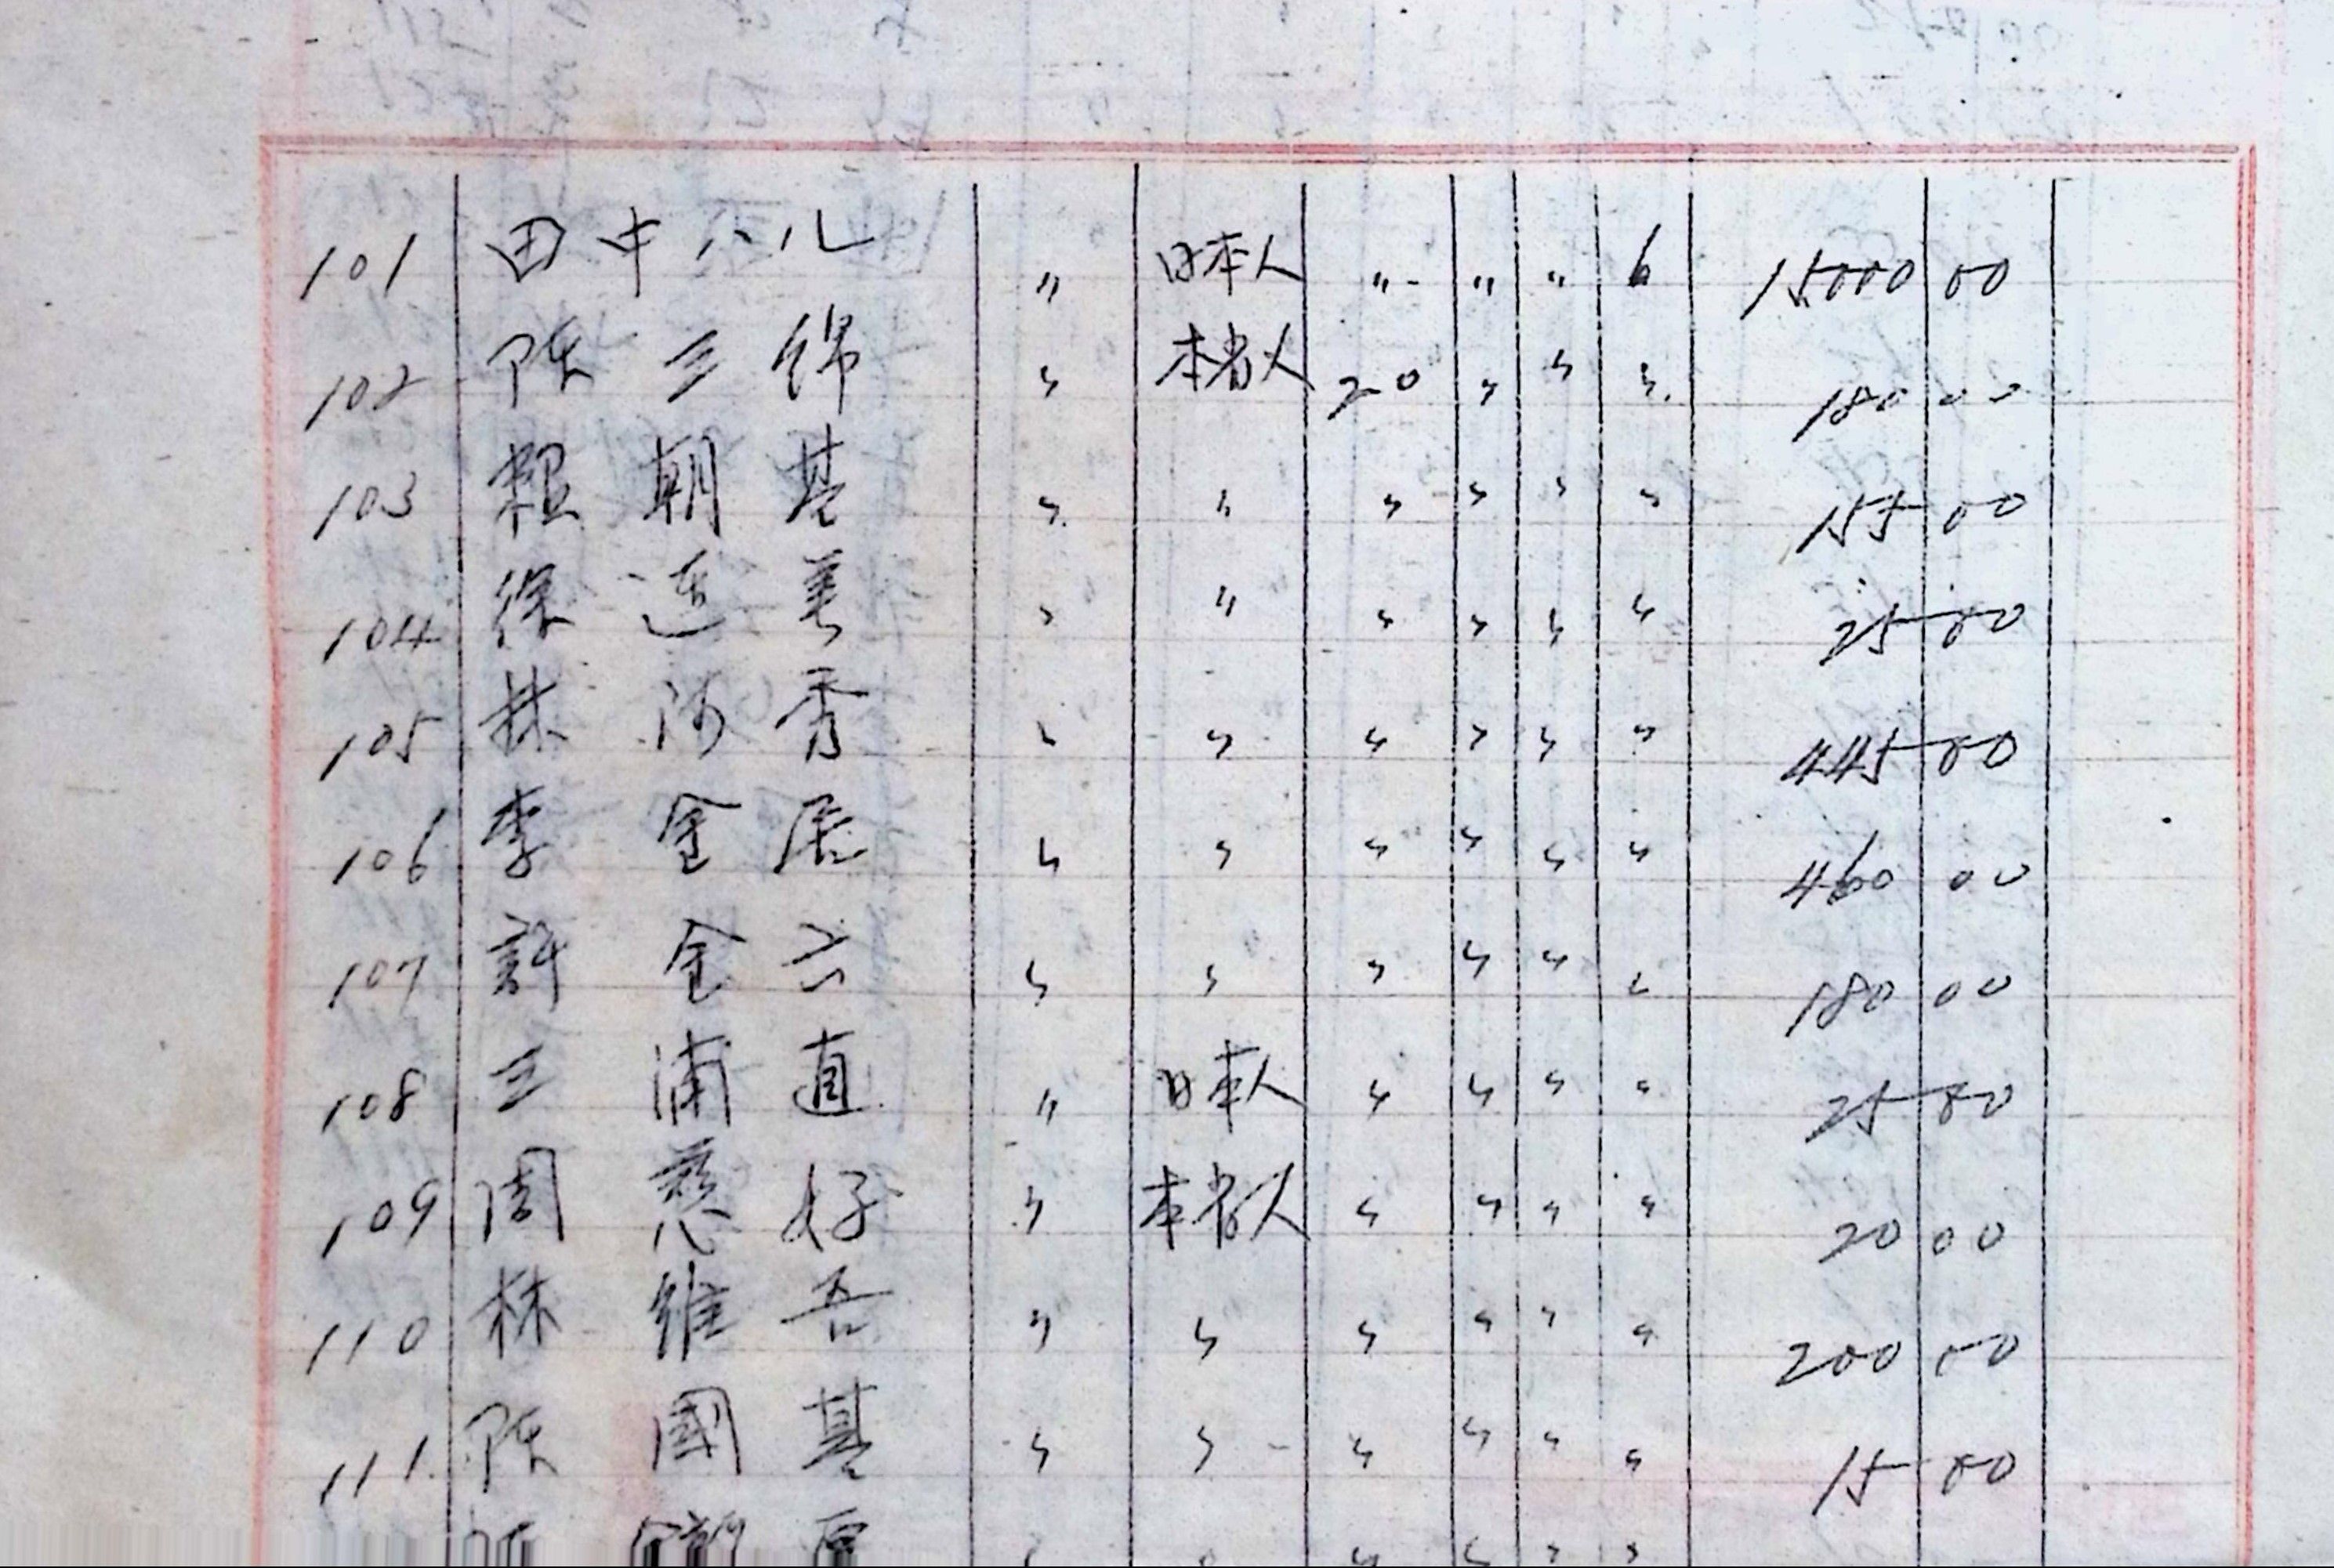 101 田中ハル 〃 日本人 〃 〃 〃 6 15000 00
102 陳三錦 〃 本省人 20 〃 〃 〃 180 00
103 賴朝基 〃 〃 〃 〃 〃 〃 155 00
104 徐連美 〃 〃 〃 〃 〃 〃 25 00
105 林海秀 〃 〃 〃 〃 〃 〃 445 00
106 李金 〃 〃 〃 〃 〃 〃 460 00
107 許金六 〃 〃 〃 〃 〃 〃 180 00
108 三浦直 〃 日本人 〃 〃 〃 〃 25 00
109 周慈好 〃 本省人 〃 〃 〃 〃 20 00
110 林維吾 〃 〃 〃 〃 〃 〃 200 00
111 陳國基 〃 〃 〃 〃 〃 〃 15 00